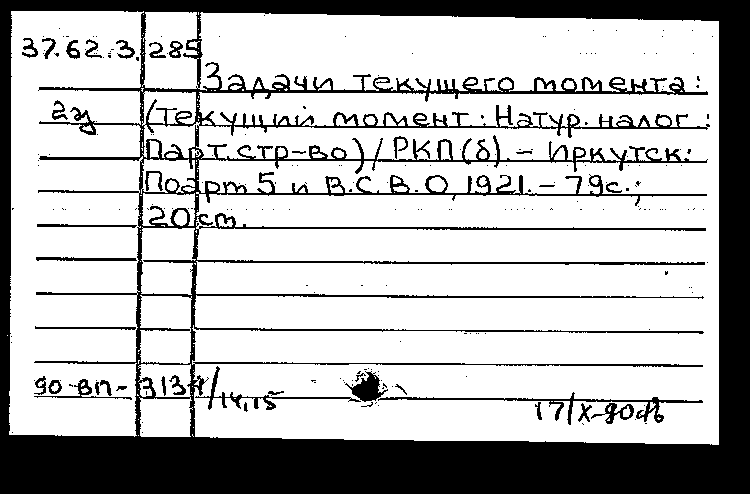 37.62.3.285
Задачи текущего момента:
2 у (Текущий момент: Натур. налог:
Парт. стр-во) / РКП(б). – Иркутск:
Поарм 5 и В.С.В.О, 1921. – 79с.;
20 ст.
90-вп- 3134/14,15
17/X-90